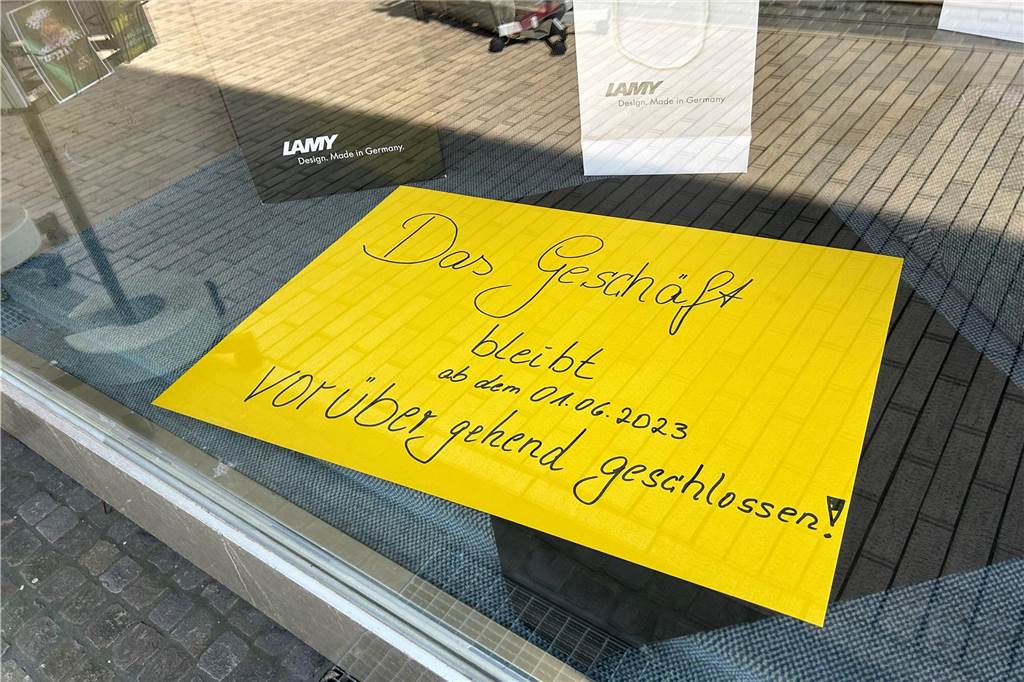 LAMY
Design. Made in Germany.
LAMY
Design. Made in Germany.
Das Geschäft
bleibt
ab dem 01.06.2023
vorübergehend geschlossen!